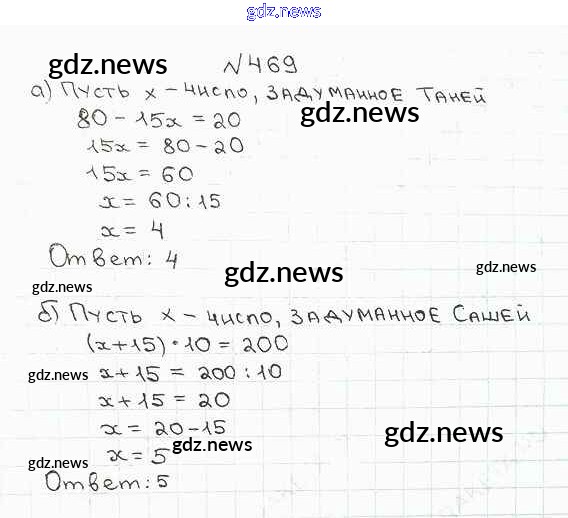 gdz.news
gdz.news
№469
а) Пусть x - число, задуманное Таней
80 - 15x = 20
gdz.news
15x = 80 - 20
15x = 60
x = 60 : 15
x = 4
Ответ: 4
gdz.news
gdz.news
gdz.news
б) Пусть x - число, задуманное Сашей
(x + 15) · 10 = 200
gdz.news
x + 15 = 200 : 10
x + 15 = 20
x = 20 - 15
gdz.news
gdz.news
x = 5
gdz.news
Ответ: 5